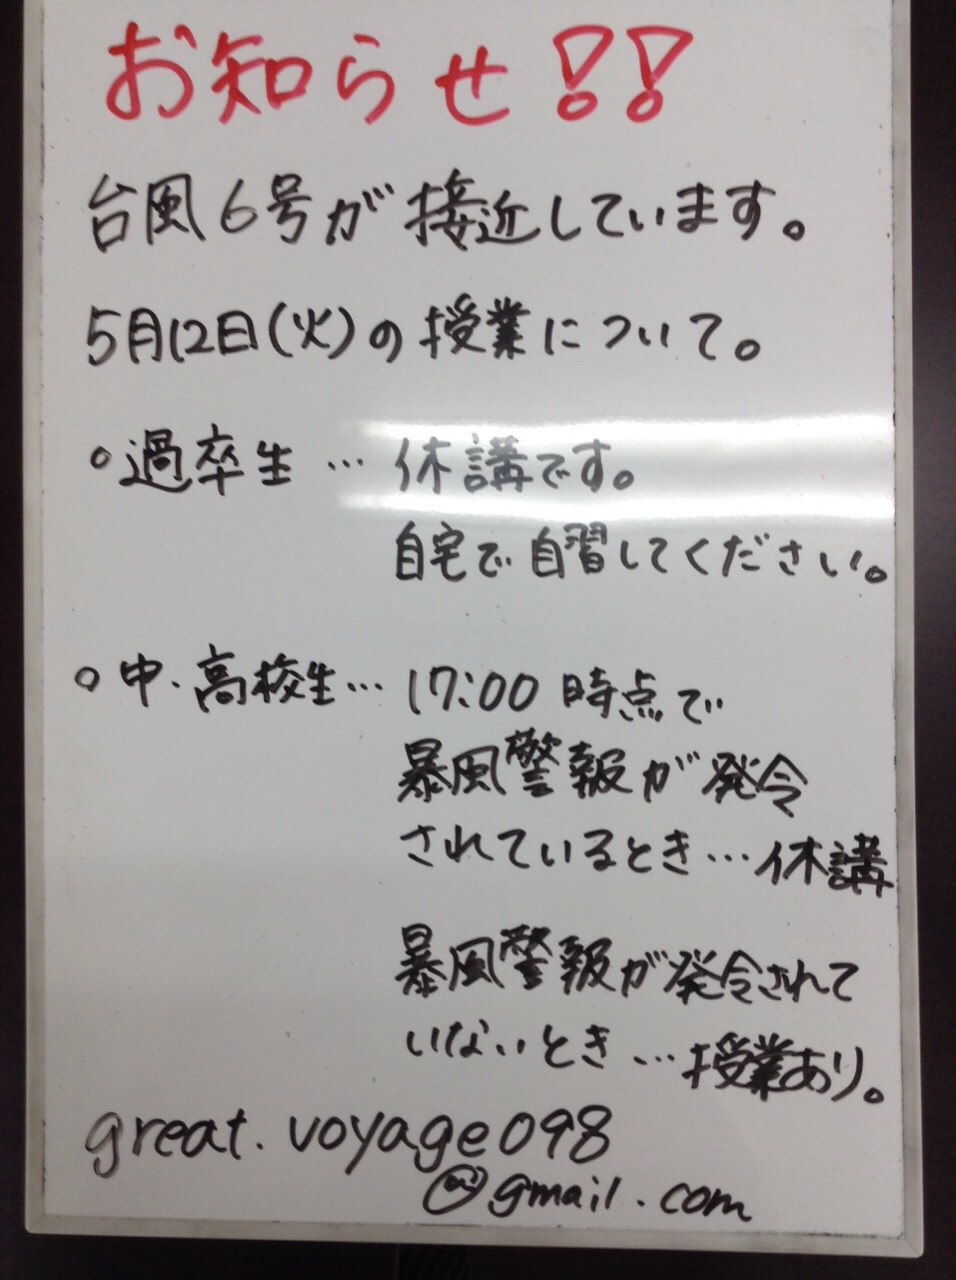 お知らせ!!
台風6号が接近しています。
5月12日(火)の授業について。
○過卒生…休講です。
自宅で自習してください。
○中・高校生…17:00時点で
暴風警報が発令
されているとき…休講
暴風警報が発令されて
いないとき…授業あり。
great.voyage098
@gmail.com